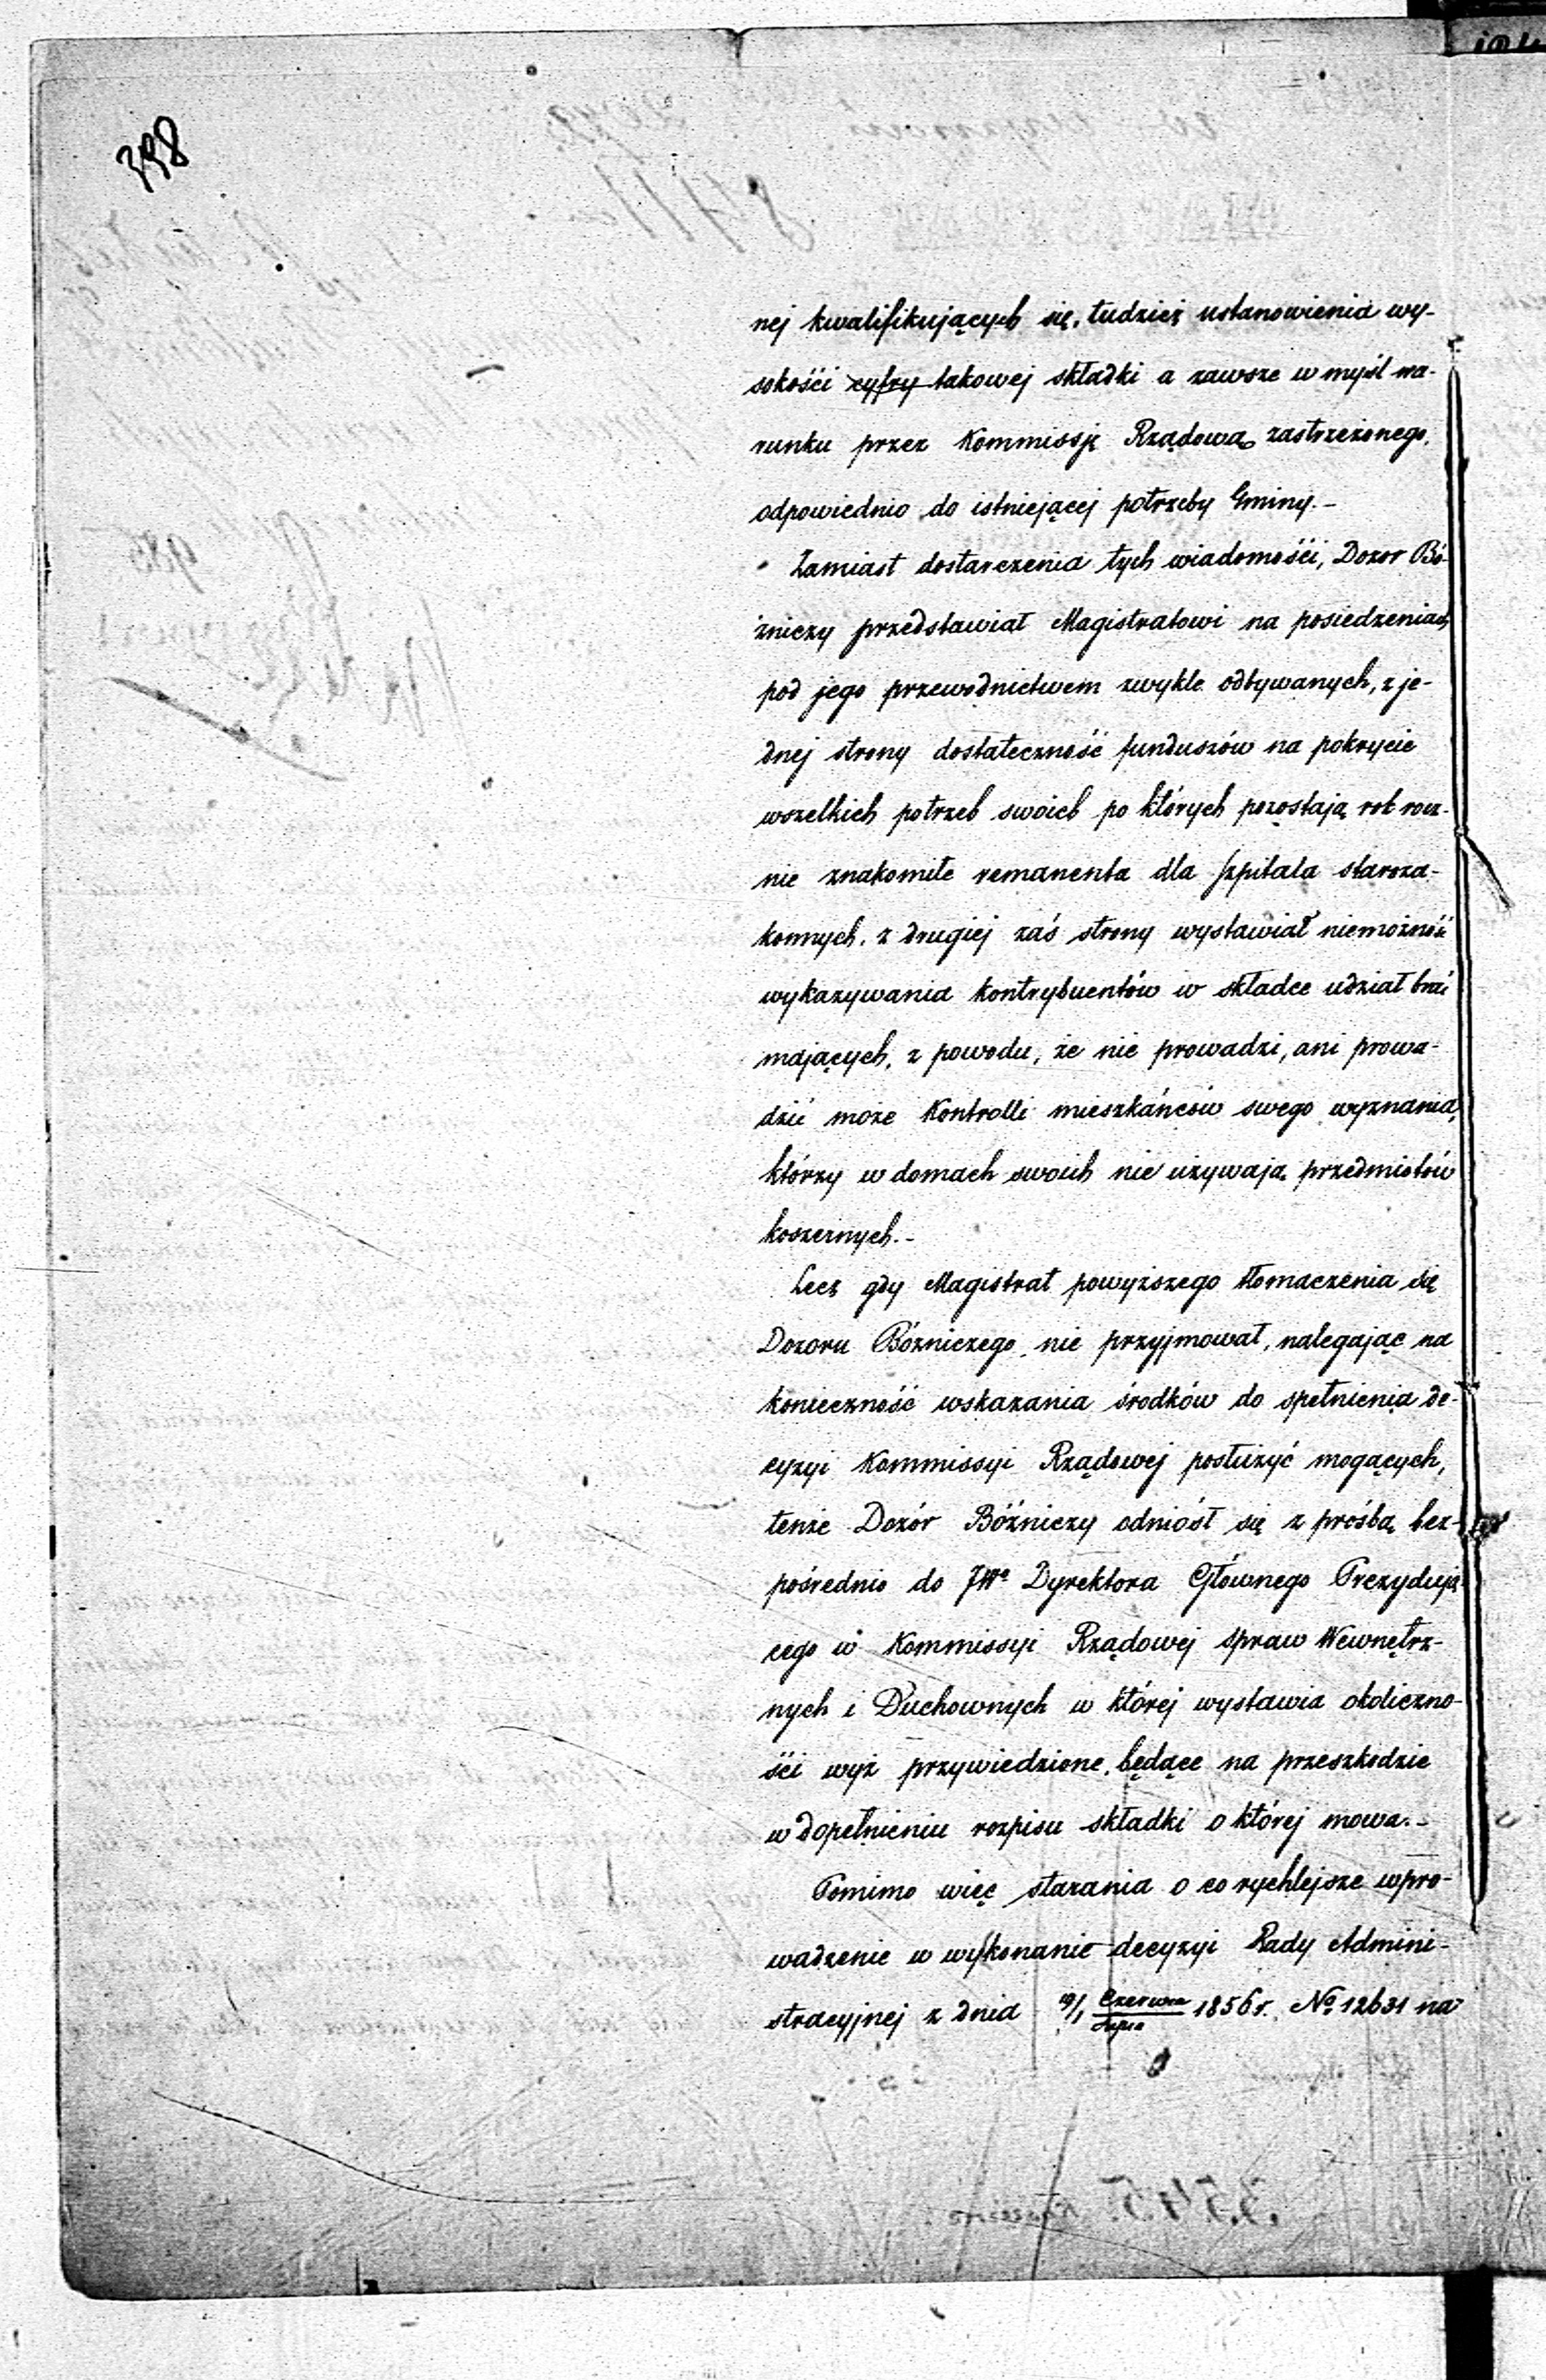 398
nej kwalifikujących się, tudzież ustanowienia wy-
sokości cyfry takowej składki a zawsze w myśl wa-
runku przez Kommissję Rządową zastrzeżonego,
odpowiednio do istniejącej potrzeby Gminy.-
Zamiast dostarczenia tych wiadomości, Dozor Bó-
żniczy przedstawiał Magistratowi na posiedzeniach
pod jego przewodnictwem zwykle odbywanych, z je-
dnej strony dostateczność funduszów na pokrycie
wszelkich potrzeb swoich po których pozostają rok rocz-
nie znakomite remanenta dla szpitala staroza-
konnych, z drugiej zaś strony wystawiał niemożność
wykazywania kontrybuentów w składce udział brać
mających, z powodu, że nie prowadzi, ani prowa-
dzić może Kontrolli mieszkańców swego wyznania,
którzy w domach swoich nie używają przedmiotów
koszernych.-
Lecz gdy Magistrat powyższego tłomaczenia się
Dozoru Bóżniczego nie przyjmował, nalegając na
konieczność wskazania środków do spełnienia de-
cyzyi Kommissyi Rządowej posłużyć mogących,
tenże Dozór Bóżniczy odniósł się z prośbą bez-
pośrednio do JWo Dyrektora Głównego Prezydują-
cego w Kommissyi Rządowej Spraw Wewnętrz-
nych i Duchownych w której wystawia okoliczno-
ści wyż przywiedzione, będące na przeszkodzie
w dopełnieniu rozpisu składki o której mowa.-
Pomimo więc starania o co rychlejsze wpro-
wadzenie w wykonanie decyzyi Rady Admini-
stracyjnej z dnia 19/1 Czerwca/Lipca 1856 r. No 12631 na